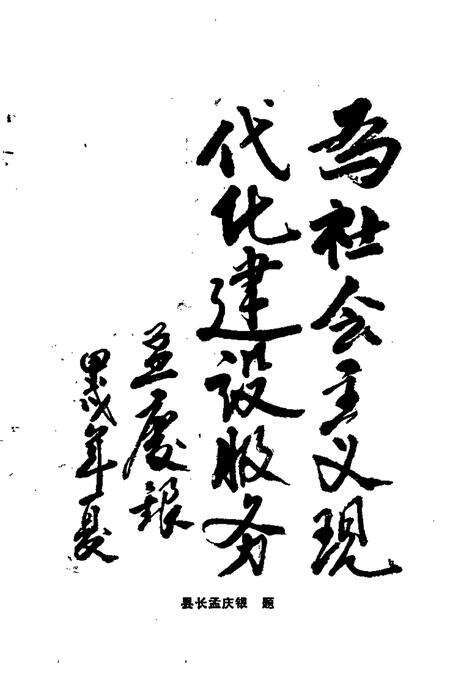 为社会主义现
代化建设服务
孟庆银
甲戌年夏
县长孟庆银 题